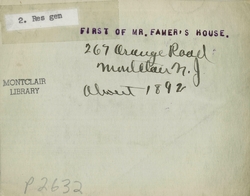 2. Res gen
FIRST OF MR. FAMER'S HOUSE.
267 Orange Road.
Montclair N.J
MONTCLAIR
LIBRARY
About 1892
P2632